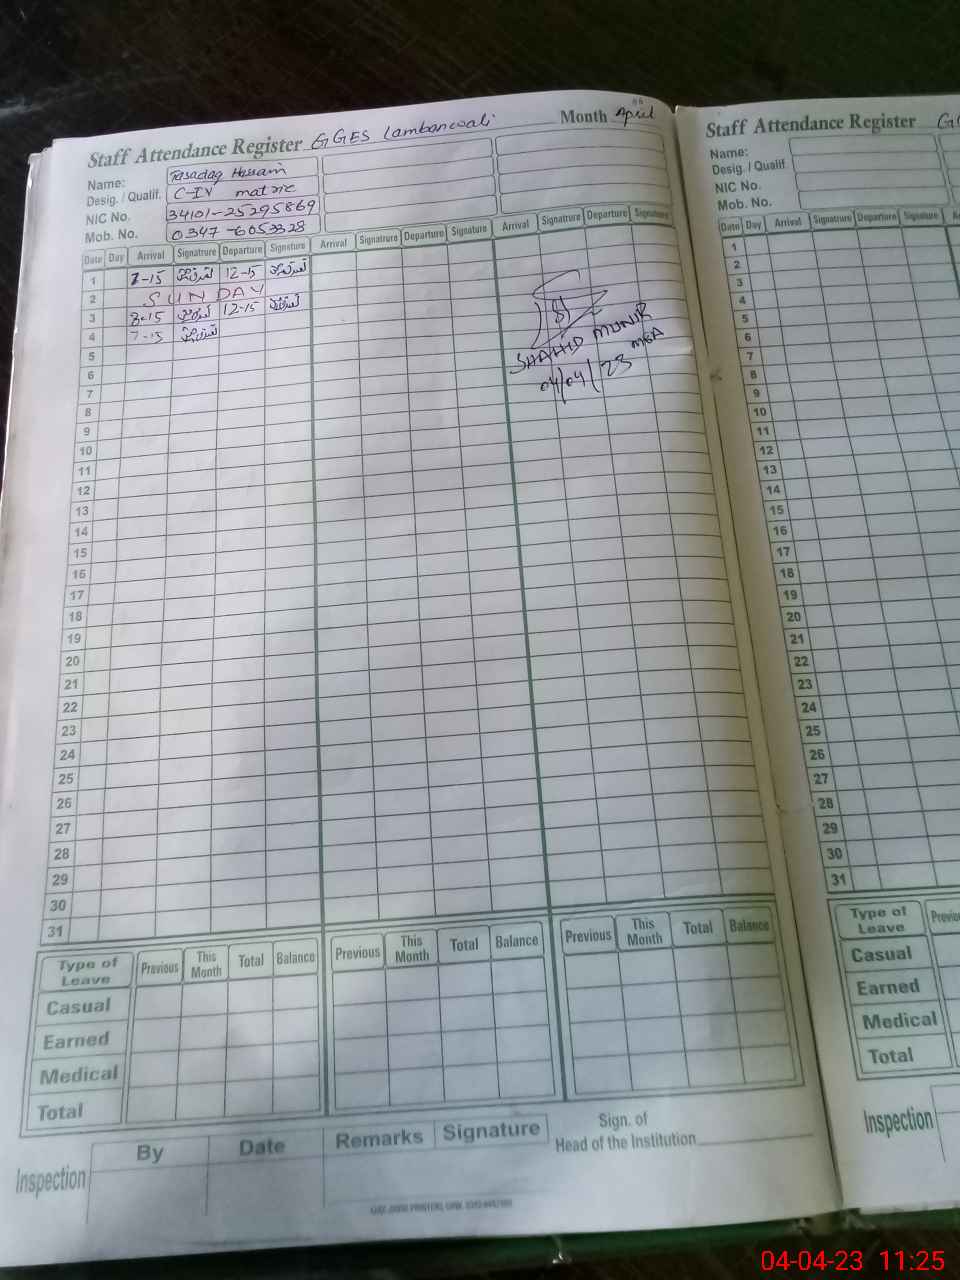 Staff Attendance Register GGES Lambanwali Month April
Name: Tasadaq Hussain
Desig. / Qualif. C-IV matric
NIC No. 34101-25295869
Mob. No. 0347-6053328
Date Day Arrival Signatrure Departure Signsture Arrival Signatrure Departure Signsture Arrival Signatrure Departure Signsture
1 7-15 12-15
2 SUNDAY
3 8-15 12-15
4 7-15
5
6
7
8
9
10
11
12
13
14
15
16
17
18
19
20
21
22
23
24
25
26
27
28
29
30
31
SHAHID MUNIR
MEA
04/04/23
Type of Leave Previous This Month Total Balance Previous This Month Total Balance Previous This Month Total Balance
Casual
Earned
Medical
Total
Inspection By Date Remarks Signature
Sign. of
Head of the Institution
Staff Attendance Register
Name:
Desig. / Qualif.
NIC No.
Mob. No.
Date Day Arrival Signatrure Departure Signsture
1
2
3
4
5
6
7
8
9
10
11
12
13
14
15
16
17
18
19
20
21
22
23
24
25
26
27
28
29
30
31
Type of Leave
Casual
Earned
Medical
Total
Inspection
04-04-23 11:25